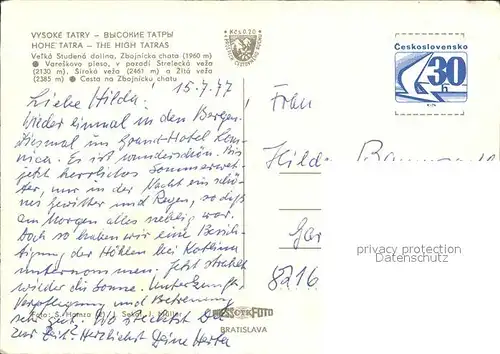 VYSOKÉ TATRY – ВЫСОКИЕ ТАТРЫ
HOHE TATRA – THE HIGH TATRAS
Veľká Studená dolina, Zbojnícka chata (1960 m)
● Vareškovo pleso, v pozadí Strelecká veža
(2130 m), Široká veža (2461 m) a Žltá veža
(2385 m) ● Cesta na Zbojnícku chatu
Kčs 0,70
Československo
30
h
15.7.77
Liebe Hilda!
Wieder einmal in den Bergen.
Diesmal im Grand-Hotel Lom-
nica. Es ist wunderschön. Bis
jetzt herrliches Sommerwet-
ter, nur in der Nacht ein schö-
nes Gewitter und Regen, so daß
am Morgen alles neblig war.
Doch so haben wir eine Besich-
tigung der Höhlen bei
unternommen; jetzt strahlt
wieder die Sonne. Unterkunft,
Verpflegung und Betreuung
sehr gut. Wo steckst Du
zur Zeit? Herzlichst Deine Herta
Frau
Hilde
Gar
8216
privacy protection
Datenschutz
Foto: S. Hamza
Müller
FOTO
BRATISLAVA